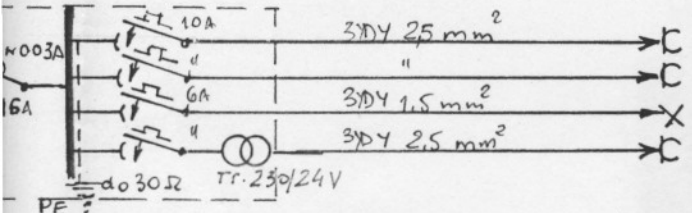 10A
3YDY 2,5 mm²
003A
"
"
16A
6A
3YDY 1,5 mm²
"
3YDY 2,5 mm²
do 30 Ω
Tr. 230/24V
PE